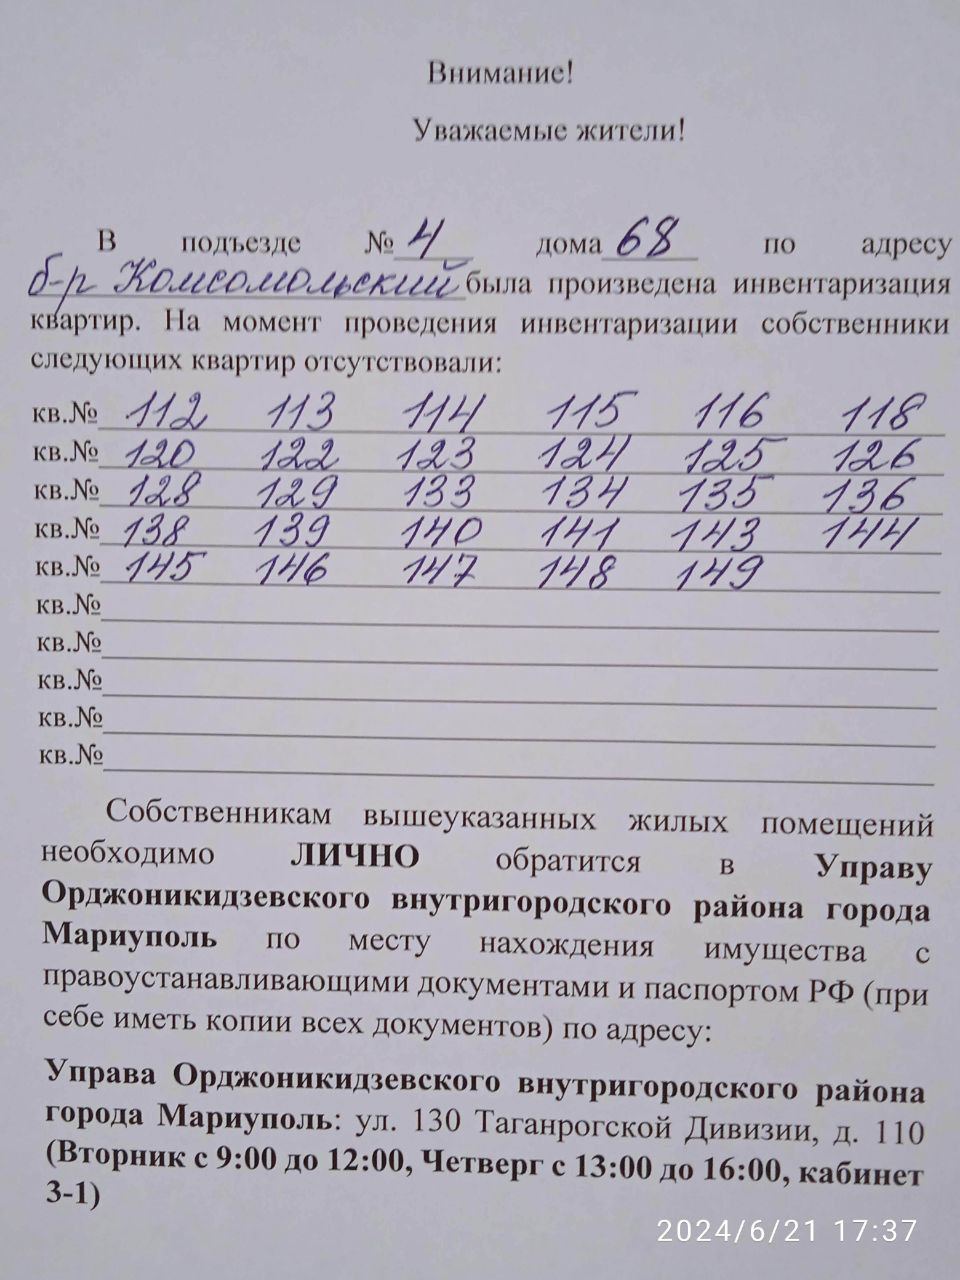 Внимание!
Уважаемые жители!
В подъезде № 4 дома 68 по адресу
б-р Комсомольский была произведена инвентаризация
квартир. На момент проведения инвентаризации собственники
следующих квартир отсутствовали:
кв.№ 112 113 114 115 116 118
кв.№ 120 122 123 124 125 126
кв.№ 128 129 133 134 135 136
кв.№ 138 139 140 141 143 144
кв.№ 145 146 147 148 149
кв.№
кв.№
кв.№
кв.№
кв.№
Собственникам вышеуказанных жилых помещений
необходимо ЛИЧНО обратится в Управу
Орджоникидзевского внутригородского района города
Мариуполь по месту нахождения имущества с
правоустанавливающими документами и паспортом РФ (при
себе иметь копии всех документов) по адресу:
Управа Орджоникидзевского внутригородского района
города Мариуполь: ул. 130 Таганрогской Дивизии, д. 110
(Вторник с 9:00 до 12:00, Четверг с 13:00 до 16:00, кабинет
3-1)
2024/6/21 17:37